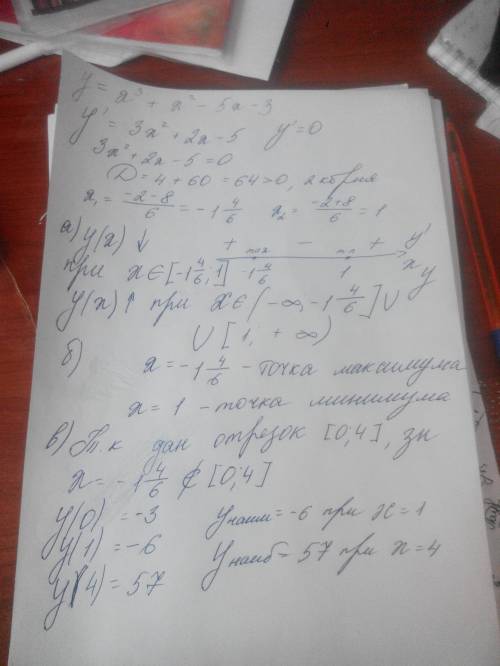 y = x³ + x² - 5x - 3
y' = 3x² + 2x - 5 y' = 0
3x² + 2x - 5 = 0
D = 4 + 60 = 64 > 0, 2 корня
x₁ = (-2-8)/6 = -1 4/6 x₂ = (-2+8)/6 = 1
а) y(x) ↓ + max - min + y'
при x ∈ [-1 4/6; 1] -1 4/6 1 x y
y(x) ↑ при x ∈ (-∞, -1 4/6] ∪
∪ [1, +∞)
б) x = -1 4/6 - точка максимума
x = 1 - точка минимума
в) Т.к дан отрезок [0,4], зн
x = -1 4/6 ∉ [0,4]
y(0) = -3 yнаим = -6 при x = 1
y(1) = -6 yнаиб = 57 при x = 4
y(4) = 57